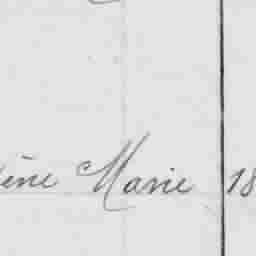 ène Marie 18